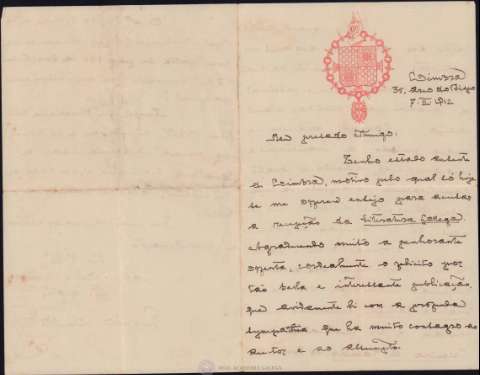 Coimbra
35, Arco do Bispo
7. III. 1912
Meu prezado Amigo:
Tenho estado ausente
de Coimbra, motivo pelo qual só hoje
se me offerece ensejo para accusar
a recepção da Literatura Gallega.
Agradecendo muito a penhorante
offerta, cordealmente o felicito por
tão bella e interessante publicação,
que avidamente li com a profunda
sympathia que ha muito consagro ao
auctor e ao assumpto.
REAL ACADEMIA GALEGA